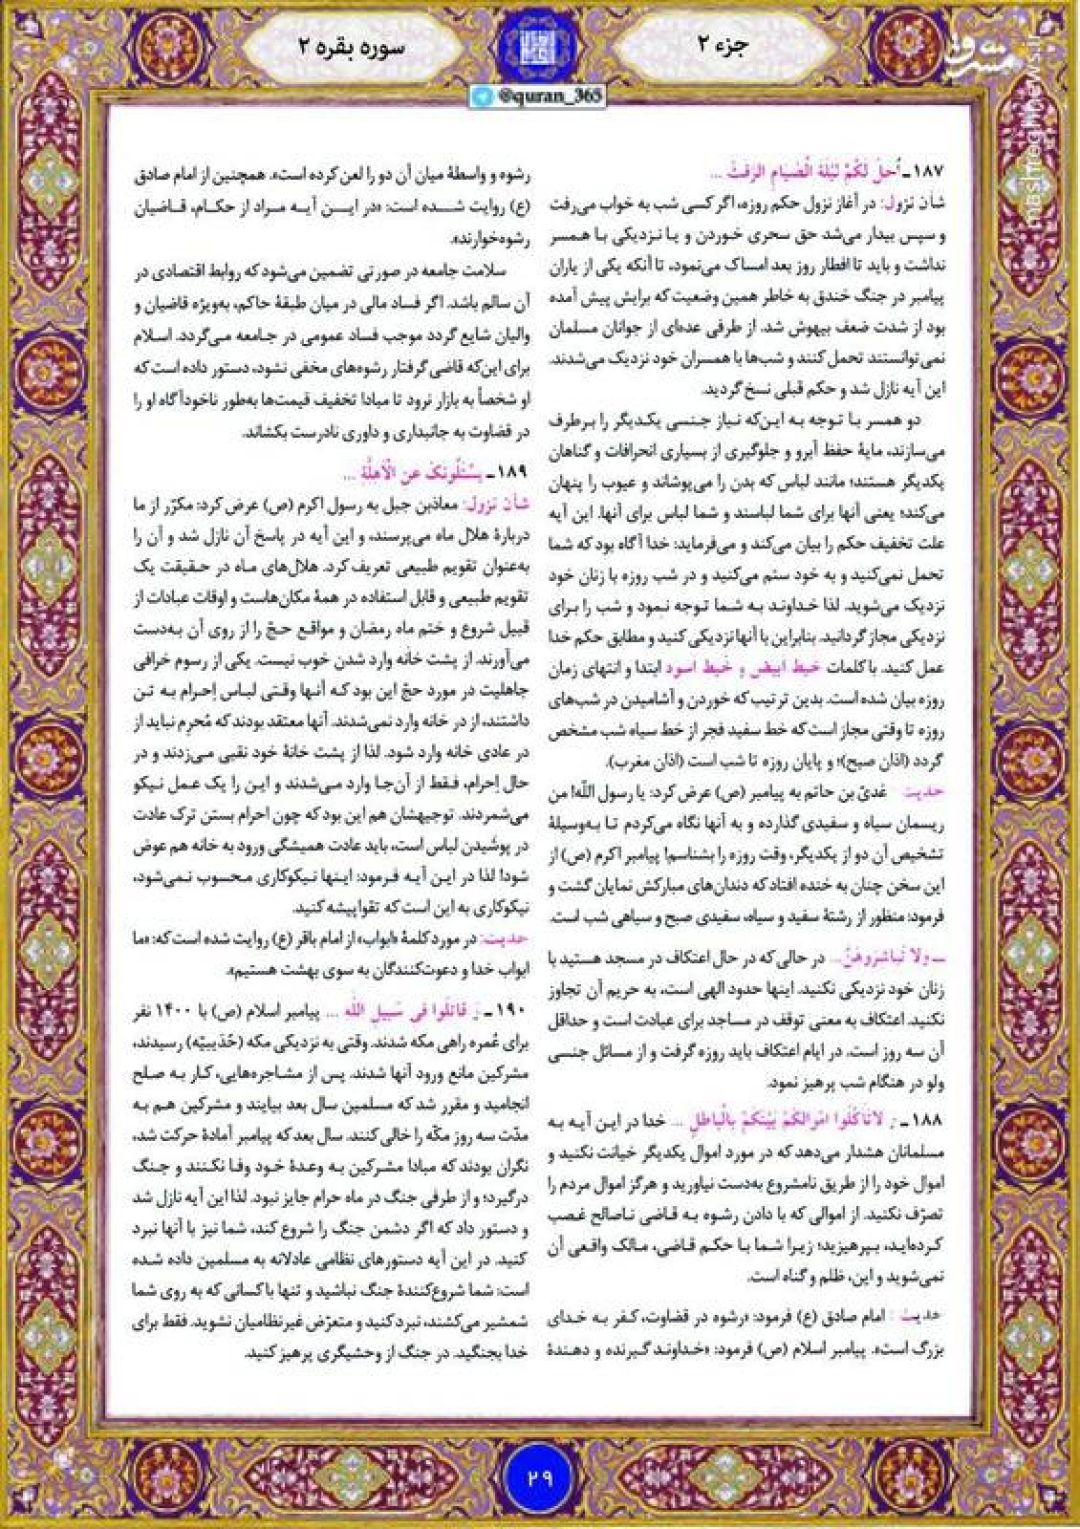 جزء ۲
سوره بقره ۲
مشرق
mashreghnews.ir
@quran_365
۱۸۷ـ اُحِلَّ لَکُمْ لَیْلَةَ الصِّیَامِ الرَّفَثُ ...
شأن نزول: در آغاز نزول حکم روزه، اگر کسی شب به خواب می‌رفت
و سپس بیدار می‌شد حق سحری خوردن و یا نزدیکی با همسر
نداشت و باید تا افطار روز بعد امساک می‌نمود، تا آنکه یکی از یاران
پیامبر در جنگ خندق به خاطر همین وضعیت که برایش پیش آمده
بود از شدت ضعف بیهوش شد. از طرفی عده‌ای از جوانان مسلمان
نمی‌توانستند تحمل کنند و شب‌ها با همسران خود نزدیک می‌شدند.
این آیه نازل شد و حکم قبلی نسخ گردید.
دو همسر با توجه به این‌که نیاز جنسی یکدیگر را برطرف
می‌سازند، مایهٔ حفظ آبرو و جلوگیری از بسیاری انحرافات و گناهان
یکدیگر هستند؛ مانند لباس که بدن را می‌پوشاند و عیوب را پنهان
می‌کند؛ یعنی آنها برای شما لباسند و شما لباس برای آنها. این آیه
علت تخفیف حکم را بیان می‌کند و می‌فرماید: خدا آگاه بود که شما
تحمل نمی‌کنید و به خود ستم می‌کنید و در شب روزه با زنان خود
نزدیک می‌شوید. لذا خداوند به شما توجه نمود و شب را برای
نزدیکی مجاز گردانید. بنابراین با آنها نزدیکی کنید و مطابق حکم خدا
عمل کنید. با کلمات خیط ابیض و خیط اسود ابتدا و انتهای زمان
روزه بیان شده است. بدین ترتیب که خوردن و آشامیدن در شب‌های
روزه تا وقتی مجاز است که خط سفید فجر از خط سیاه شب مشخص
گردد (اذان صبح)؛ و پایان روزه تا شب است (اذان مغرب).
حدیث عَدیّ بن حاتم به پیامبر (ص) عرض کرد: یا رسول اللّه! من
ریسمان سیاه و سفیدی گذارده و به آنها نگاه می‌کردم تا به‌وسیلهٔ
تشخیص آن دو از یکدیگر، وقت روزه را بشناسم! پیامبر اکرم (ص) از
این سخن چنان به خنده افتاد که دندان‌های مبارکش نمایان گشت و
فرمود: منظور از رشتهٔ سفید و سیاه، سفیدی صبح و سیاهی شب است.
ـ وَلا تُباشِرُوهُنَّ... در حالی‌که در حال اعتکاف در مسجد هستید با
زنان خود نزدیکی نکنید. اینها حدود الهی است، به حریم آن تجاوز
نکنید. اعتکاف به معنی توقف در مساجد برای عبادت است و حداقل
آن سه روز است. در ایام اعتکاف باید روزه گرفت و از مسائل جنسی
ولو در هنگام شب پرهیز نمود.
۱۸۸ـ وَ لاتَأکُلُوا امْوالَکُمْ بَیْنَکُمْ بِالْباطِلِ ... خدا در این آیه به
مسلمانان هشدار می‌دهد که در مورد اموال یکدیگر خیانت نکنید و
اموال خود را از طریق نامشروع به‌دست نیاورید و هرگز اموال مردم را
تصرّف نکنید. از اموالی که با دادن رشوه به قاضی ناصالح غصب
کرده‌اید، بپرهیزید؛ زیرا شما با حکم قاضی، مالک واقعی آن
نمی‌شوید و این، ظلم و گناه است.
حدیث: امام صادق (ع) فرمود: «رشوه در قضاوت، کفر به خدای
بزرگ است». پیامبر اسلام (ص) فرمود: «خداوند گیرنده و دهندهٔ
رشوه و واسطهٔ میان آن دو را لعن کرده است». همچنین از امام صادق
(ع) روایت شده است: «در این آیه مراد از حکام، قاضیان
رشوه‌خوارند».
سلامت جامعه در صورتی تضمین می‌شود که روابط اقتصادی در
آن سالم باشد. اگر فساد مالی در میان طبقهٔ حاکم، به‌ویژه قاضیان و
والیان شایع گردد موجب فساد عمومی در جامعه می‌گردد. اسلام
برای این‌که قاضی گرفتار رشوه‌های مخفی نشود، دستور داده است که
او شخصاً به بازار نرود تا مبادا تخفیف قیمت‌ها به‌طور ناخودآگاه او را
در قضاوت به جانبداری و داوری نادرست بکشاند.
۱۸۹ـ یَسْئَلُونَکَ عَنِ الْأَهِلَّةِ ...
شأن نزول: معاذبن جبل به رسول اکرم (ص) عرض کرد: مکرّر از ما
دربارهٔ هلال ماه می‌پرسند، و این آیه در پاسخ آن نازل شد و آن را
به‌عنوان تقویم طبیعی تعریف کرد. هلال‌های ماه در حقیقت یک
تقویم طبیعی و قابل استفاده در همهٔ مکان‌هاست و اوقات عبادات از
قبیل شروع و ختم ماه رمضان و مواقع حجّ را از روی آن به‌دست
می‌آورند. از پشت خانه وارد شدن خوب نیست. یکی از رسوم خرافی
جاهلیت در مورد حجّ این بود که آنها وقتی لباس اِحرام به تن
داشتند، از در خانه وارد نمی‌شدند. آنها معتقد بودند که مُحرِم نباید از
در عادی خانه وارد شود. لذا از پشت خانهٔ خود نقبی می‌زدند و در
حال اِحرام، فقط از آن‌جا وارد می‌شدند و این را یک عمل نیکو
می‌شمردند. توجیهشان هم این بود که چون احرام بستن ترک عادت
در پوشیدن لباس است، باید عادت همیشگی ورود به خانه هم عوض
شود! لذا در این آیه فرمود: اینها نیکوکاری محسوب نمی‌شود،
نیکوکاری به این است که تقوا پیشه کنید.
حدیث: در مورد کلمهٔ «ابواب» از امام باقر (ع) روایت شده است که: «ما
ابواب خدا و دعوت‌کنندگان به سوی بهشت هستیم».
۱۹۰ـ وَ قاتِلُوا فی سَبیلِ اللّهِ ... پیامبر اسلام (ص) با ۱۴۰۰ نفر
برای عُمره راهی مکه شدند. وقتی به نزدیکی مکه (حُدَیبیّه) رسیدند،
مشرکین مانع ورود آنها شدند. پس از مشاجره‌هایی، کار به صلح
انجامید و مقرر شد که مسلمین سال بعد بیایند و مشرکین هم به
مدّت سه روز مکّه را خالی کنند. سال بعد که پیامبر آمادهٔ حرکت شد،
نگران بودند که مبادا مشرکین به وعدهٔ خود وفا نکنند و جنگ
درگیرد؛ و از طرفی جنگ در ماه حرام جایز نبود. لذا این آیه نازل شد
و دستور داد که اگر دشمن جنگ را شروع کند، شما نیز با آنها نبرد
کنید. در این آیه دستورهای نظامی عادلانه به مسلمین داده شده
است: شما شروع‌کنندهٔ جنگ نباشید و تنها با کسانی که به روی شما
شمشیر می‌کشند، نبرد کنید و متعرّض غیرنظامیان نشوید. فقط برای
خدا بجنگید. در جنگ از وحشیگری پرهیز کنید.
۲۹